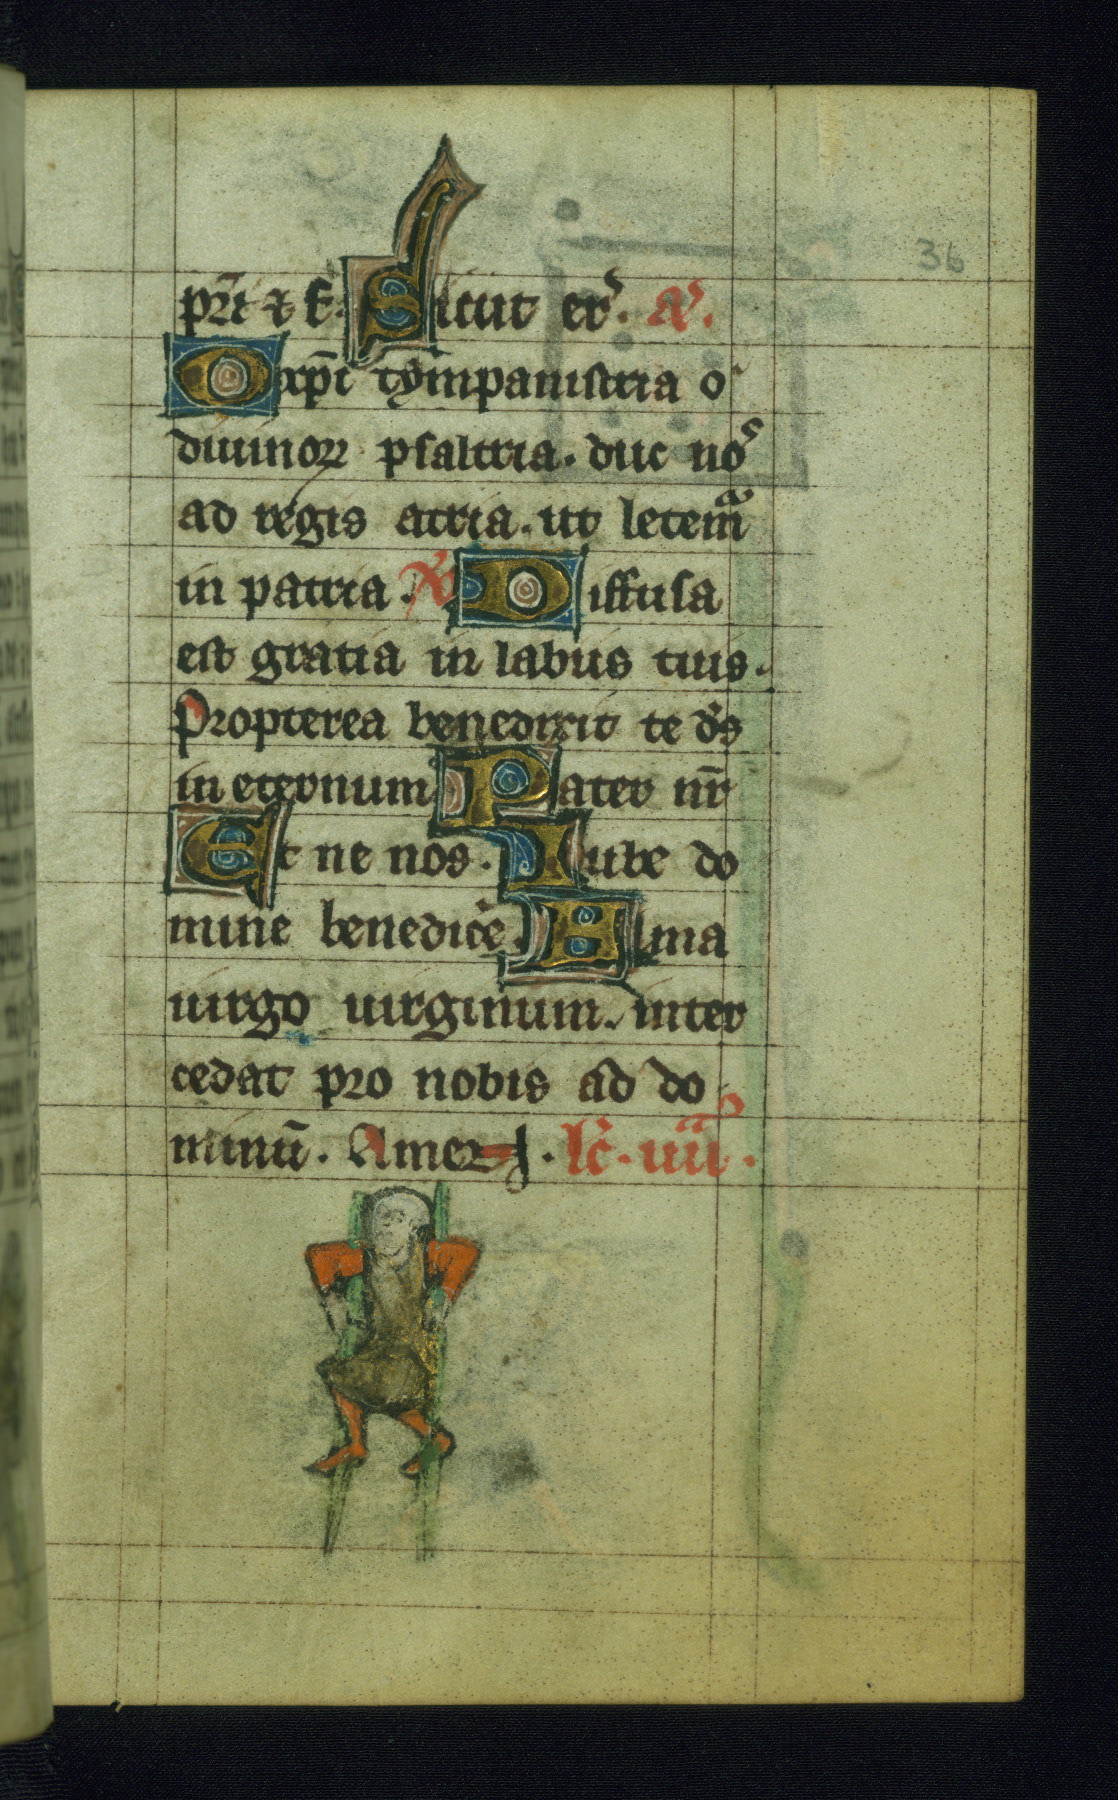 36
pr̄i ⁊ f. Sicut er̾. a᷒.
O xp̄i tȳmpanistria o
diuinoꝝ psaltria. duc no᷒
ad regis atria. ut letemᷓ
in patria. ℣ Diffusa
est gratia in labiis tuis.
Propterea benedixit te d̄s
in eternum Pater nr̄
Et ne nos. Iube do
mine benedic̄e. Alma
uirgo uirginum. inter
cedat pro nobis ad do
minū. Amen. lc̄. iiiiᷓ.